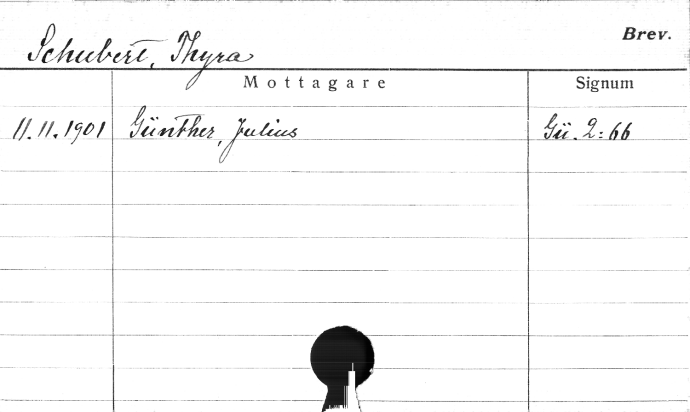 Brev.
Schubert, Thyra
Mottagare Signum
11.11.1901 Günther, Julius Gü. 2:66